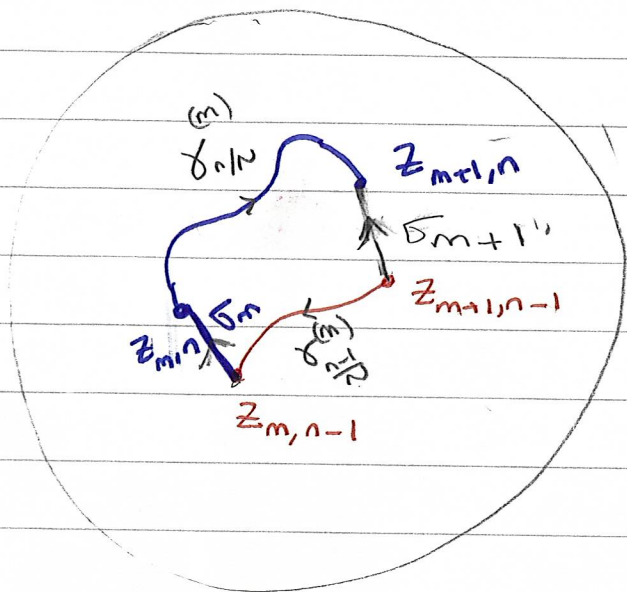 (m)
γ n/N
z m+1,n
σ m+1
z m+1,n-1
σ m
z m,n
(m)
z m,n-1